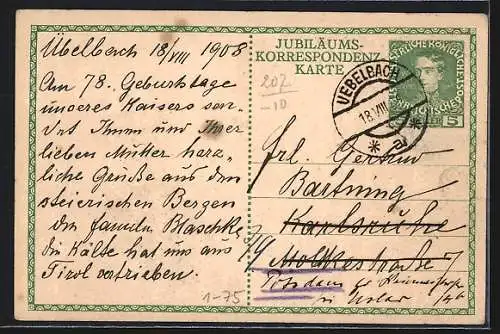 Übelbach 18/VIII 1908
Am 78. Geburtstage
unseres Kaisers sen-
det Ihnen und Ihrer
lieben Mutter herz-
liche Grüße aus den
steierischen Bergen
die familie Blaschke
Die Kälte hat uns aus
Tirol vertrieben.
1-75
JUBILÄUMS-
KORRESPONDENZ-
KARTE
207
-10
UEBELBACH
18.VIII
* a *
5
frl. Gertrud
Bartning
Karlsruhe
Moltkestraße
Potsdam